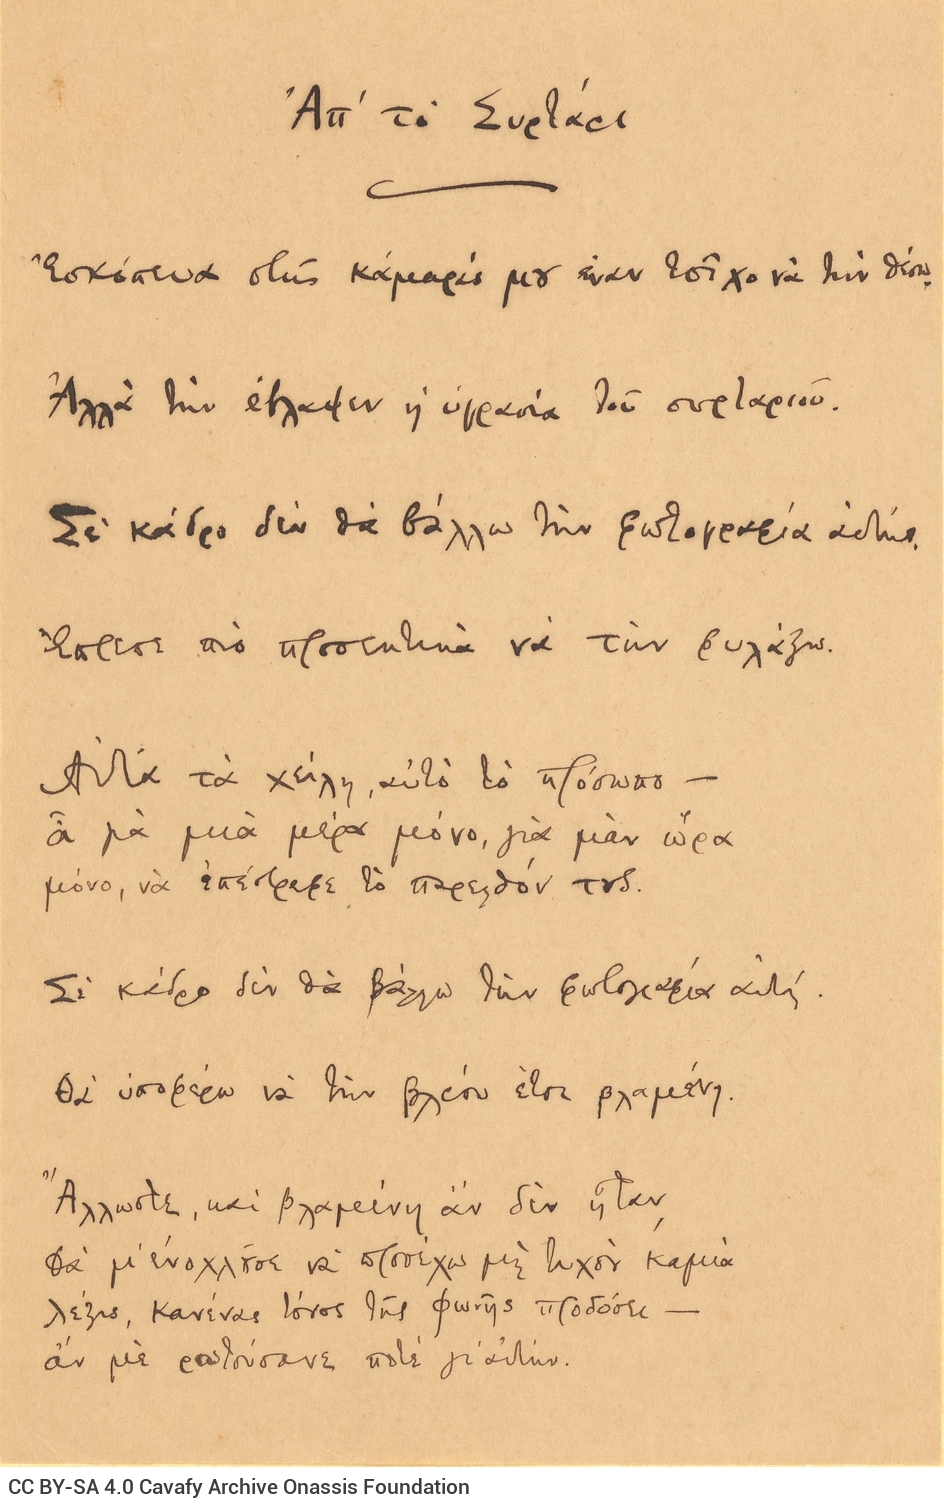 Ἀπ' τὸ Συρτάρι
Ἐσκόπευα στῆς κάμαράς μου ἕναν τοῖχο νὰ τὴν θέσω.
Ἀλλὰ τὴν ἔβλαψεν ἡ ὑγρασία τοῦ συρταριοῦ.
Σὲ κάδρο δὲν θὰ βάλλω τὴν φωτογραφία αὐτή.
Ἔπρεπε πιὸ προσεκτικὰ νὰ τὴν φυλάξω.
Αὐτὰ τὰ χείλη, αὐτὸ τὸ πρόσωπο —
ἆ γιὰ μιὰ μέρα μόνο, γιὰ μιὰν ὥρα
μόνο, νὰ ἐπέστρεφε τὸ παρελθόν τους.
Σὲ κάδρο δὲν θὰ βάλλω τὴν φωτογραφία αὐτή.
Θὰ ὑποφέρω νὰ τὴν βλέπω ἔτσι βλαμένη.
Ἄλλωστε, καὶ βλαμένη ἂν δὲν ἦταν,
θὰ μ' ἐνοχλοῦσε νὰ προσέχω μὴ τυχὸν καμιὰ
λέξις, κανένας τόνος τῆς φωνῆς προδόσει —
ἂν μὲ ρωτούσανε ποτὲ γι' αὐτήν.
CC BY-SA 4.0 Cavafy Archive Onassis Foundation